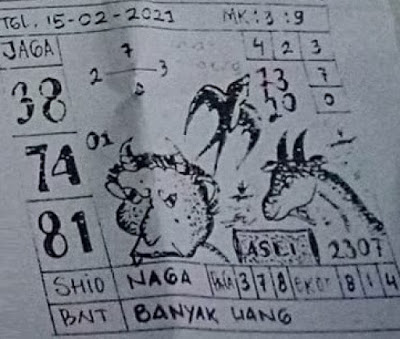 TGL. 15-02-2021 MK: 3 : 9
JAGA 7 4 2 3
2 3 7
38 0 13 0
20
74 01
81 ASLI 2307
SHIO NAGA 3 7 8 EKOR 8 1 4
BNT BANYAK UANG